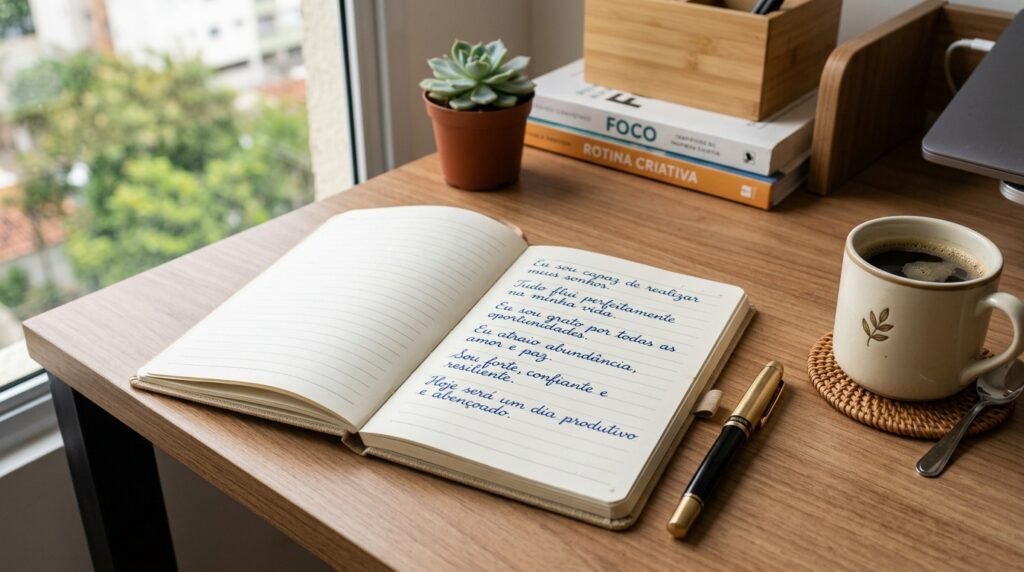 FOCO
ROTINA CRIATIVA
Eu sou capaz de realizar
meus sonhos.
Tudo flui perfeitamente
na minha vida.
Eu sou grato por todas as
oportunidades.
Eu atraio abundância,
amor e paz.
Sou forte, confiante e
resiliente.
Hoje será um dia produtivo
e abençoado.